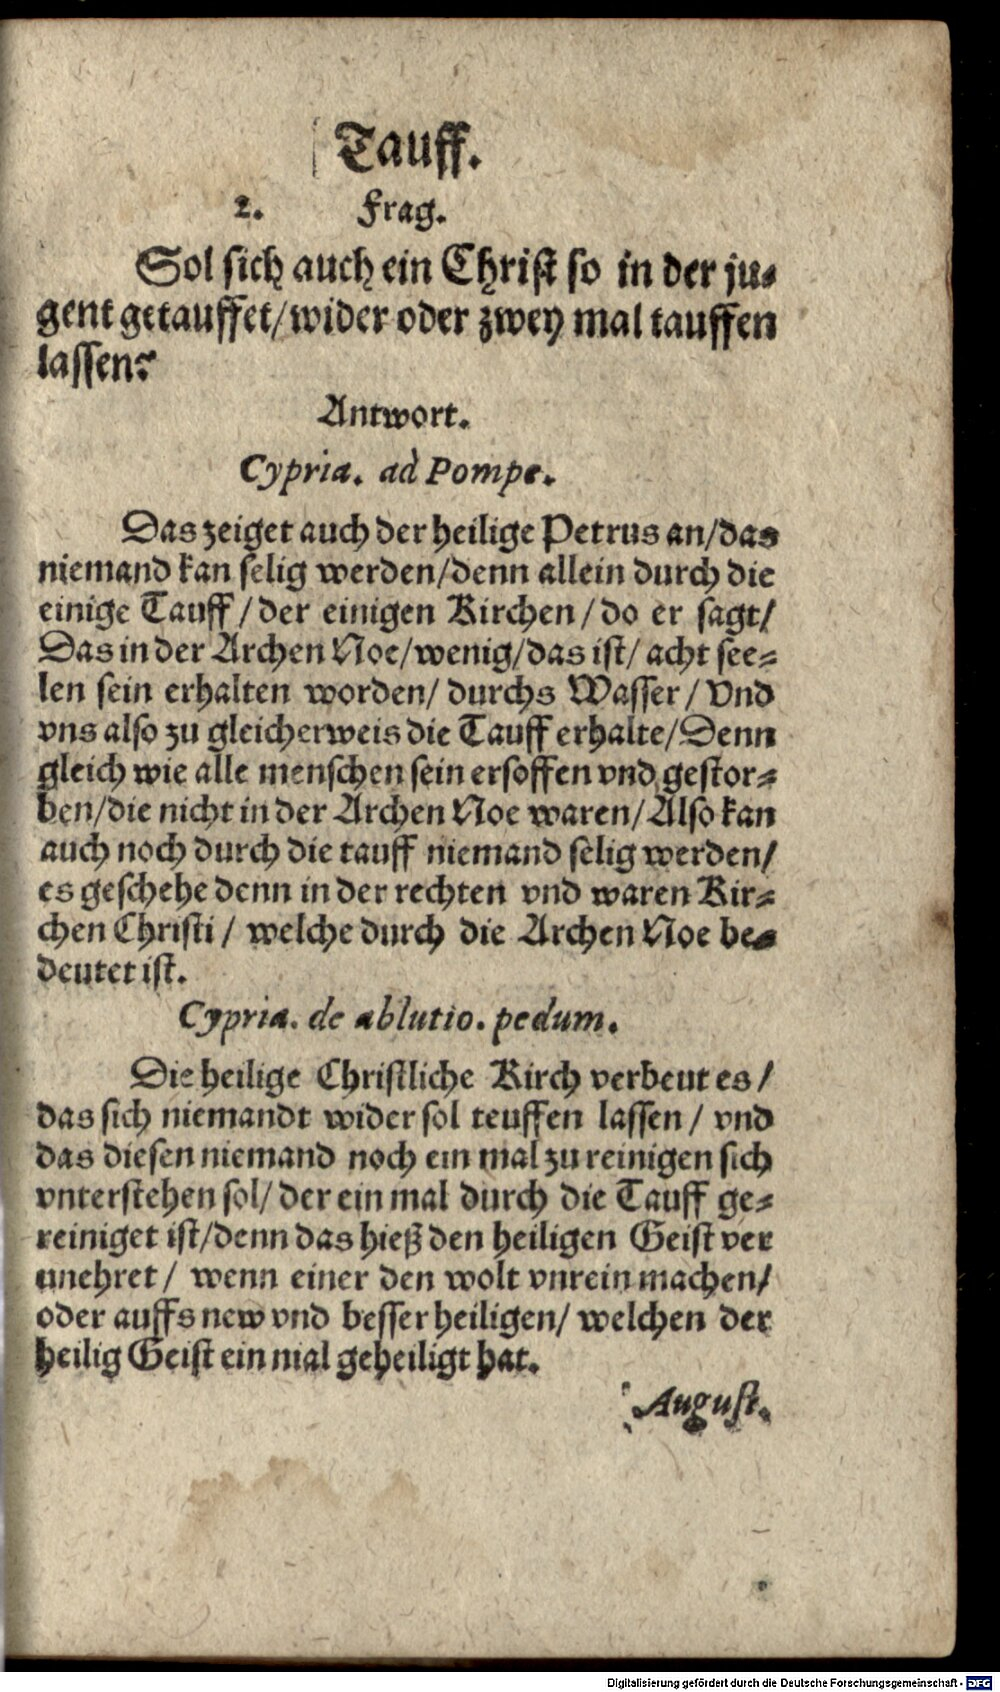 Tauff.
2. Frag.
Sol sich auch ein Christ so in der ju-
gent getauffet/wider oder zwey mal tauffen
lassen?
Antwort.
Cypria. ad Pompe.
Das zeiget auch der heilige Petrus an/das
niemand kan selig werden/denn allein durch die
einige Tauff/der einigen Kirchen/do er sagt/
Das in der Archen Noe/wenig/das ist/ acht see-
len sein erhalten worden/ durchs Wasser/Vnd
vns also zu gleicherweis die Tauff erhalte/Denn
gleich wie alle menschen sein ersoffen vnd gestor-
ben/die nicht in der Archen Noe waren/Also kan
auch noch durch die tauff niemand selig werden/
es geschehe denn in der rechten vnd waren Kir-
chen Christi/ welche durch die Archen Noe be-
deutet ist.
Cypria. de ablutio. pedum.
Die heilige Christliche Kirch verbeut es/
das sich niemandt wider sol teuffen lassen/ vnd
das diesen niemand noch ein mal zu reinigen sich
vnterstehen sol/ der ein mal durch die Tauff ge-
reiniget ist/denn das hieß den heiligen Geist ver
unehret/ wenn einer den wolt vnrein machen/
oder auffs new vnd besser heiligen/ welchen der
heilig Geist ein mal geheiligt hat.
August.
Digitalisierung gefördert durch die Deutsche Forschungsgemeinschaft - DFG